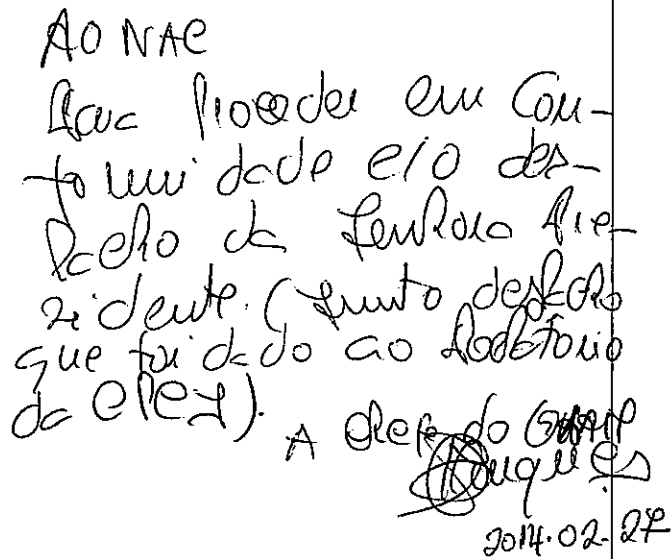 AO NAC
Para Proceder em Con-
formidade c/o des-
pacho da Senhora Pre-
zidente. (Junto despacho
que foi dado ao Relatório
da CPCJ).
A Chefe do
2014.02.27